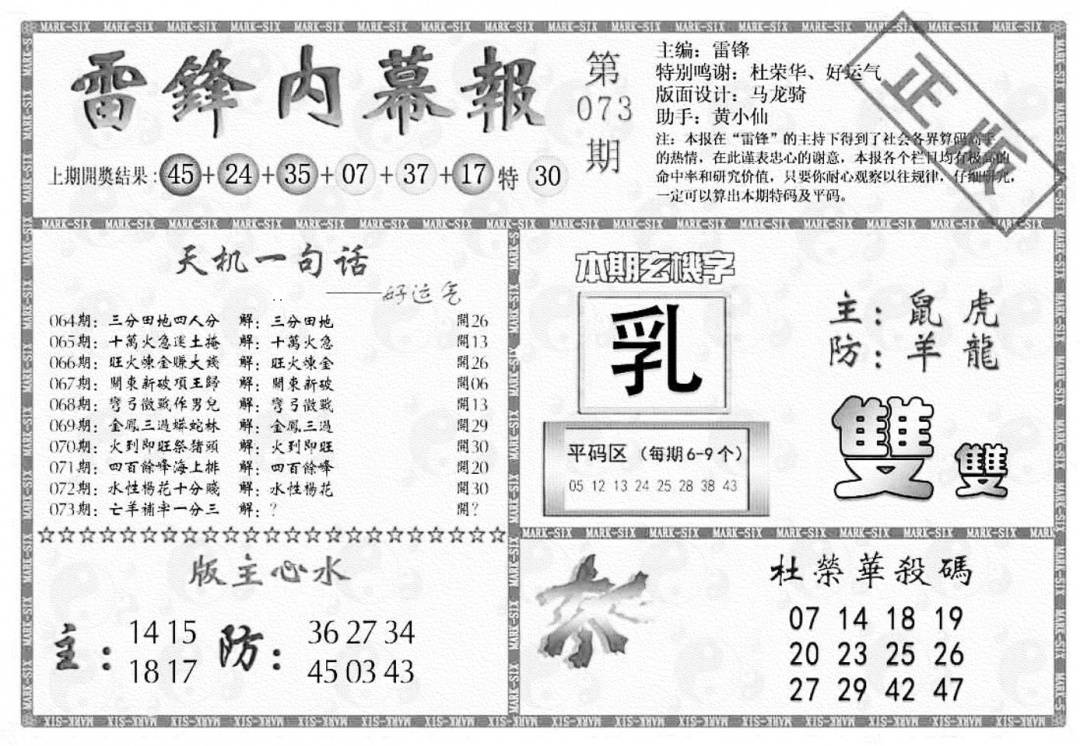 雷鋒内幕報
第
073
期
主编：雷锋
特别鸣谢：杜荣华、好运气
版面设计：马龙骑
助手：黄小仙
注：本报在“雷锋”的主持下得到了社会各界算码高手
的热情，在此谨表忠心的谢意，本报各个栏目均有极高的
命中率和研究价值，只要你耐心观察以往规律，仔细研究，
一定可以算出本期特码及平码。
正版
上期開獎结果：45+24+35+07+37+17特30
天机一句话
——好运气
064期：三分田地四人分 解：三分田地 開26
065期：十萬火急運土掩 解：十萬火急 開13
066期：旺火煉金賺大錢 解：旺火煉金 開26
067期：關東新破項王歸 解：關東新破 開06
068期：彎弓徵戰作男兒 解：彎弓徵戰 開13
069期：金鳳三過蟒蛇林 解：金鳳三過 開29
070期：火到即旺祭猪頭 解：火到即旺 開30
071期：四百餘峰海上排 解：四百餘峰 開20
072期：水性楊花十分賤 解：水性楊花 開30
073期：亡羊補牢一分三 解：？ 開？
☆☆☆☆☆☆☆☆☆☆☆☆☆☆☆☆☆☆☆☆☆☆☆
版主心水
主：
14 15
18 17
防：
36 27 34
45 03 43
本期玄機字
乳
主：鼠 虎
防：羊 龍
雙 雙
平码区（每期6-9个）
05 12 13 24 25 28 38 43
杀
杜榮華殺碼
07 14 18 19
20 23 25 26
27 29 42 47
MARK-SIX